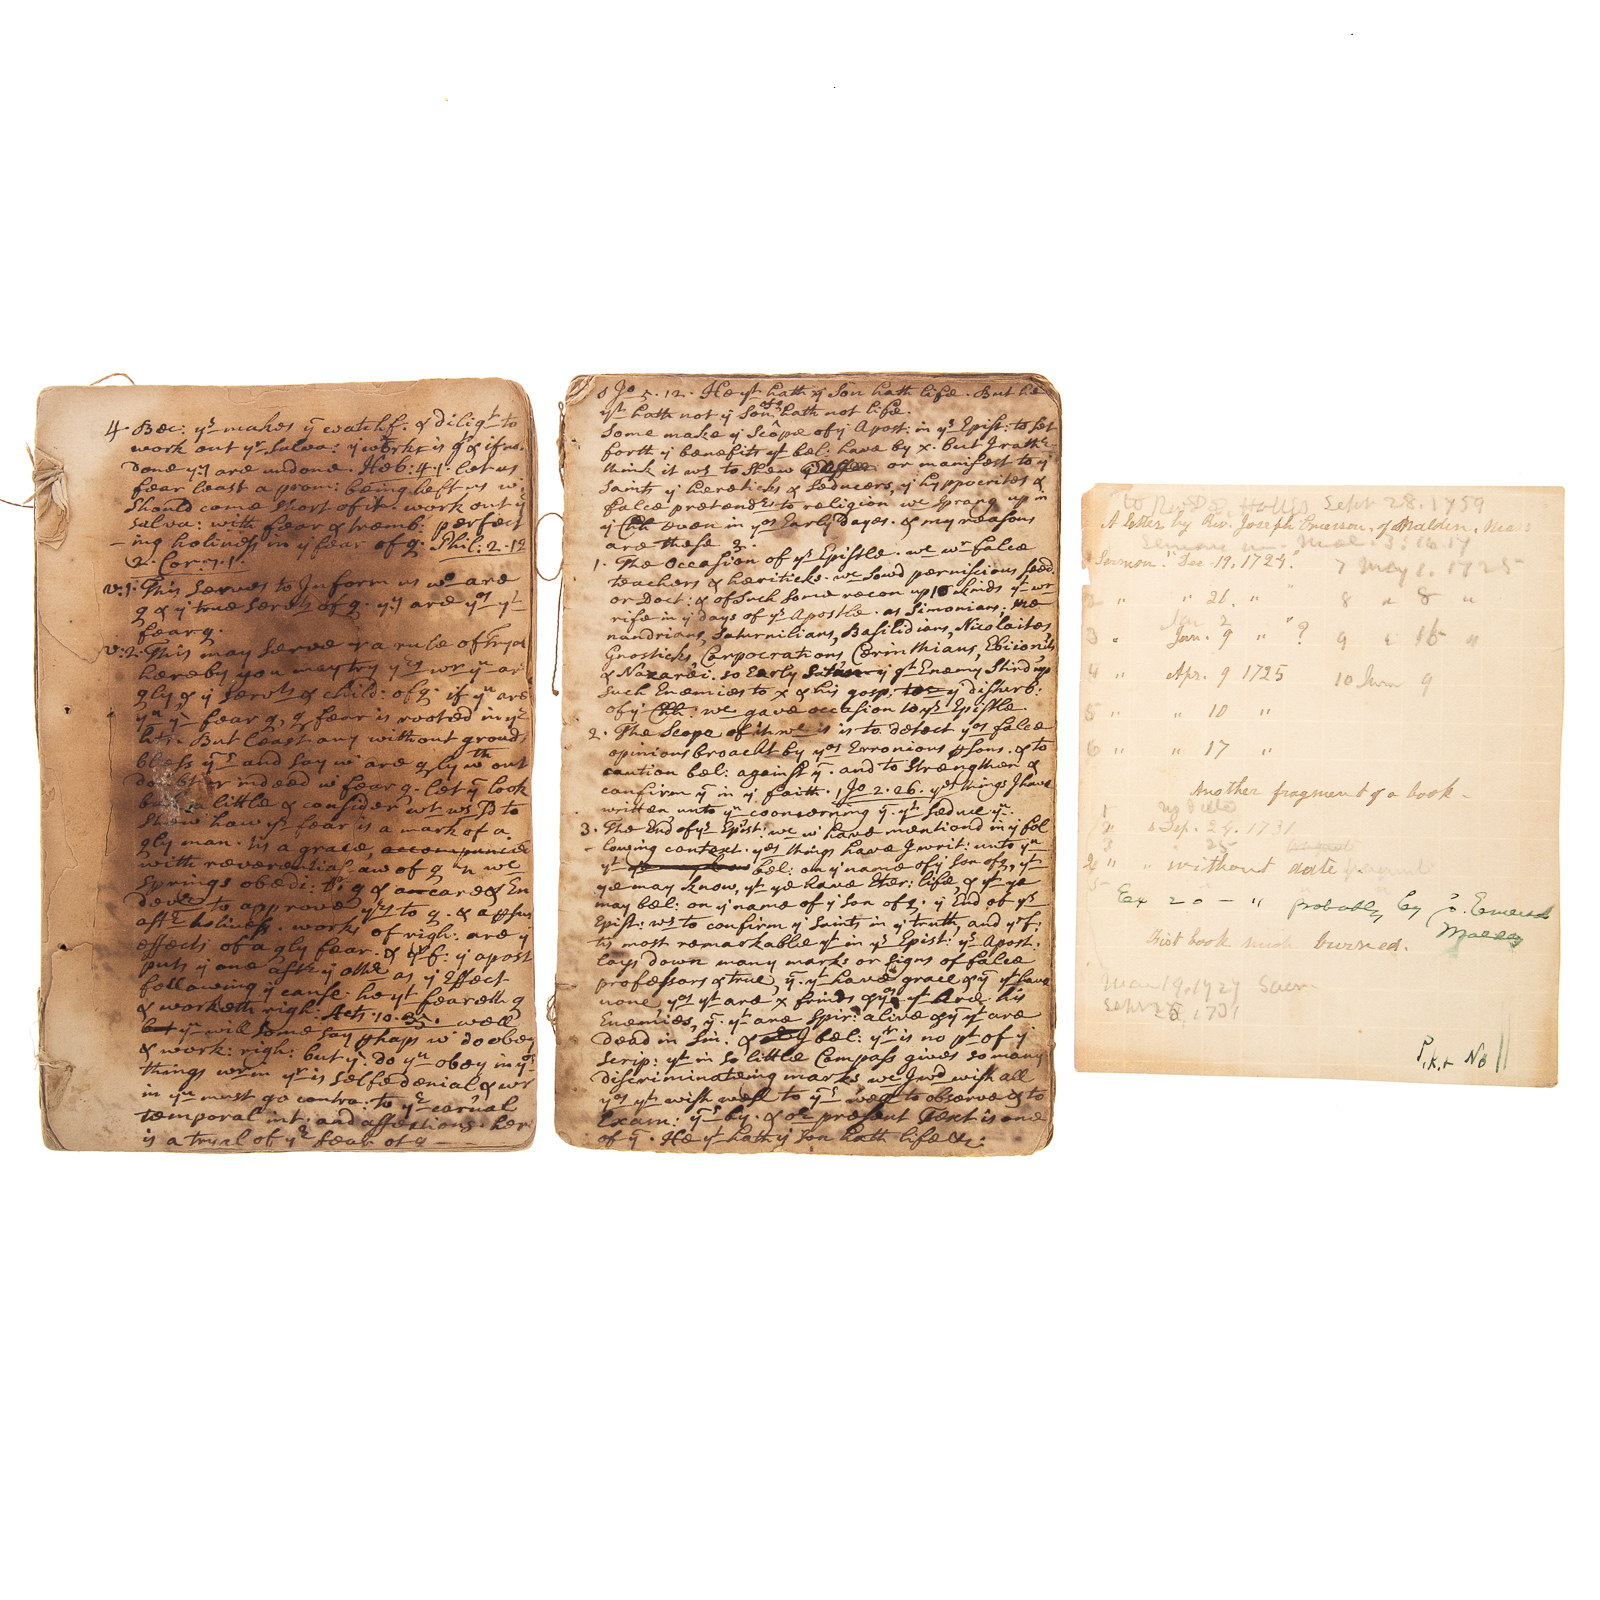 4. Bec: ys makes ym watchf. & diligt to
work out yr salva: ye work is gt & if no.
done yy are undone. Heb: 4.1. let us
fear least a prom: being left us we
should come short of it. work out yr
salva: with fear & tremb: perfect
-ing holiness in ye fear of g. Phil: 2.12
2. Cor: 7.1.
v: 1. This Serves to Inform us wo are
g & ye true Servts of g. yy are yos yt
fear g.
v: 2. This may Serve as a rule of tryal
hereby you may try yrs wr yu ar
gly & ye Servts & child: of g: if yu are
yn yu fear g, & fear is rooted in yr
hts. But least any without ground
bless yms and say we are gly without
doubt or indeed we fear g. let ym look
but a little & consider wt ws sd to
shew how ys fear is a mark of a
gly man. tis a grace, accompanied
with reverential aw of g in wc
Springs obedi: to g & a care & En
devr to approve yrs to g. &
after holiness. works of righ: are ye
effects of a gly fear. & yf: ye apost
puts ye one after ye othr as ye Effect
following ye cause. he yt feareth g
& worketh righ: Acts. 10.35. well
but yn will some say phaps we do obey
& work: righ: but yn do yu obey in yos
things wrin yr is selfe denial & wr
in yu must go contra: to yr carnal
temporal int: and affections. her
is a tryal of yr fear of g —
1 Jo 5.12. He yt hath ye Son hath life. But he
yt hath not ye Son of g hath not life.
Some make ye Scope of ye Apost: in ys Epist: to set
forth ye benefits yt bel: have by x. but I rathr
think it ws to shew or manifest to ye
Saints ye hereticks & Seducers, ye hyppocrites &
false pretendrs to religion wc sprang up in
ye Chh even in yos Early Dayes. & my reasons
are these 3.
1. The Occasion of ys Epistle. wc wr false
teachers & heriticks. wc sowd pernicious seed.
or Doct: & of Such Some recon up 10 kinds yt wr
rife in ye days of ys Apostle. as Simonians. Me
nandrians, Saturnilians, Basilidians, Nicolaites
Gnosticks Carpocrations Corinthians, Ebionits
& Nazarei. so Early yt gt Enemy Stird up
such Enemies to x & his gosp: ye disturb:
of ye Chh: wc gave occasion to ys Epistle.
2. The Scope of it. wc is is to detect yos false
opinions broacht by yos Erronious psons. & to
caution bel: against ym. and to strengthen &
confirm ym in ye faith. 1 Jo 2.26. yes things I have
written unto yu concerning ym yt seduce yu.
3. The End of ys Epist: wc we have mentiond in ye fol
-lowing context. yes things have I writ: unto yu
yt bel: on ye name of ye Son of g, yt
ye may know, yt ye have Eter: life, & yt ye
may bel: on ye name of ye Son of g. ye End of ys
Epist: ws to confirm ye Saints in ye truth, and yrf:
tis most remarkable yt in ys Epist: ys Apost.
lays down many marks or signs of false
professors & true, ym yt have grace & ym yt have
none, yos yt are x frinds & yos yt are his
Enemies, ym yt are Spir: alive & ym yt are
dead in Sin. & I bel: yr is no pt of ye
Scrip: yt in so little Compass gives so many
discriminateing marks. wc I wd wish all
yos yt wish well to yms well to observe & to
Exam: yms by. & or present Text is one
of ym. He yt hath ye Son hath life &c:
to Sept 28. 1759
A letter by Rev. Joseph Emerson, of Malden, Mass
Sermon 3:16.17
1 Sermon "Dec 19, 1724."
7 May 1. 1725
2 " " 26. " "
8 " 8 "
Jan 2
3 " Jan. 9 " ?
9 " 15 "
4 " Apr. 9 1725
10 June 9
5 " " 10 "
6 " " 17 "
Another fragment of a book—
1 no date
2 " Sep. 24. 1731
3 25
4 " " without date fragment
5
20 — " probably by J. Emerson
Malden
First book much burned.
Mar 19. 1727
Sept 28, 1731
Pkt No 11